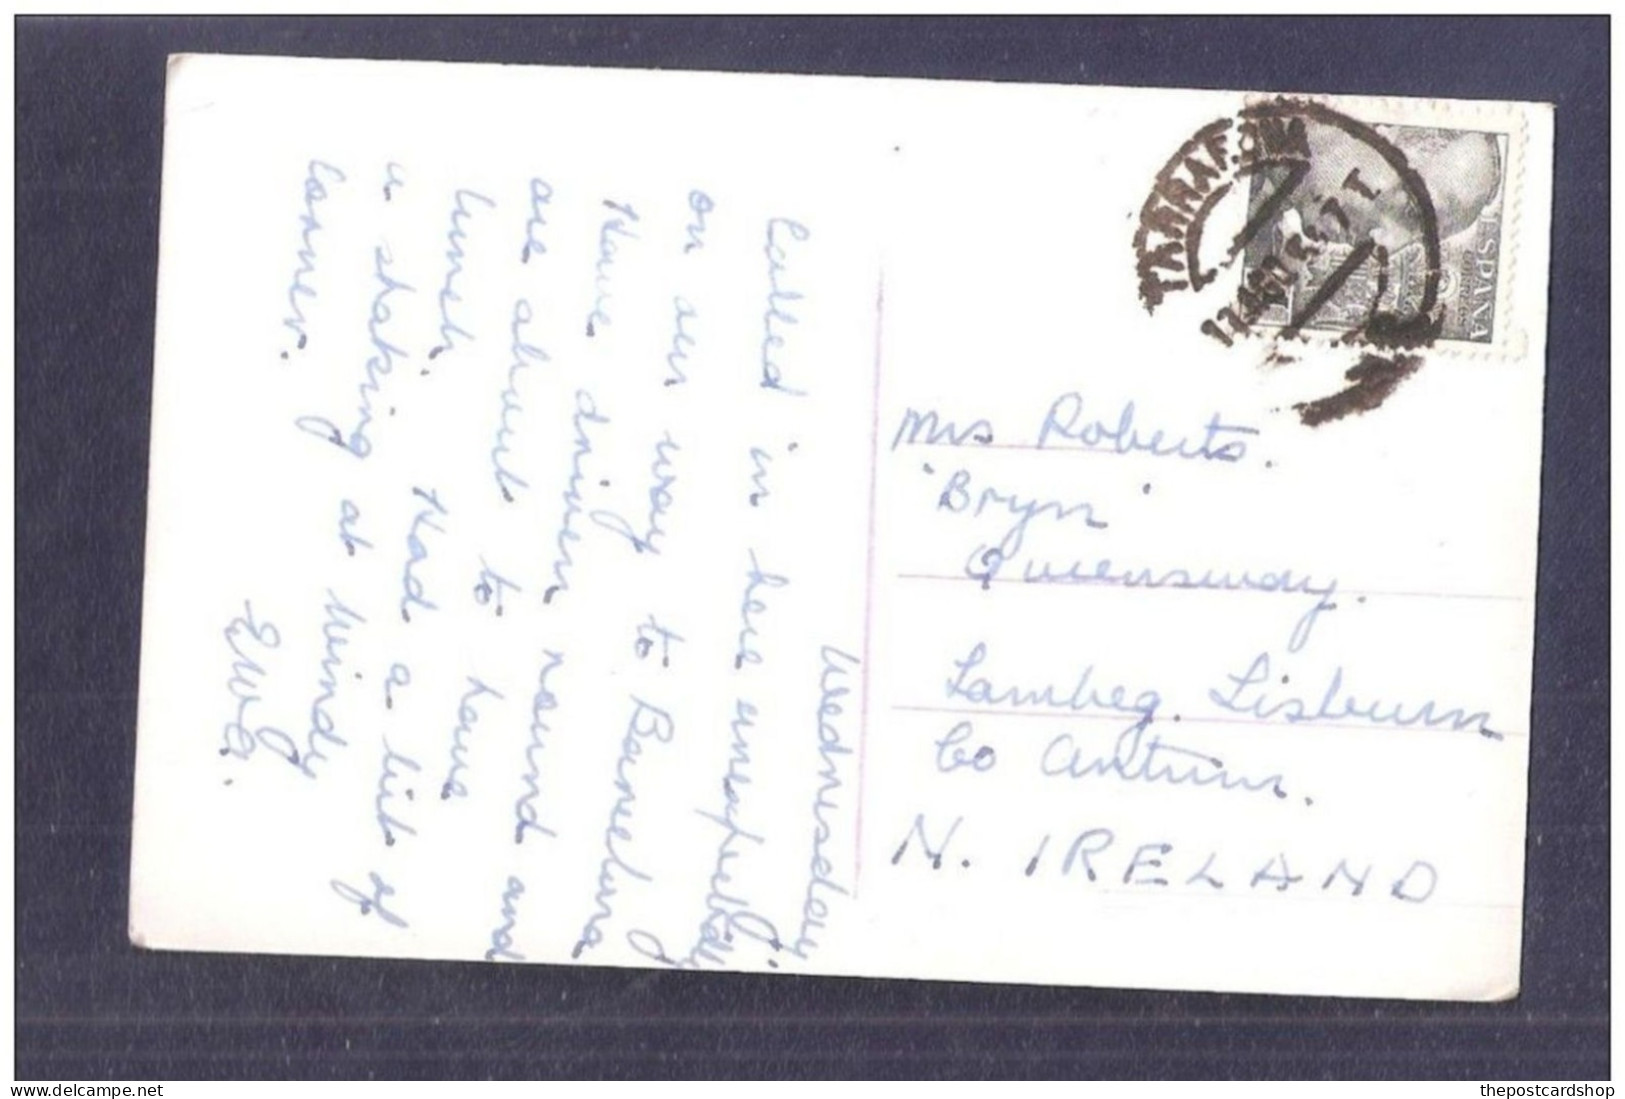 Wednesday
Called in here unexpectedly
on our way to Barcelona
Have driven round and
are about to have
lunch. Had a bit of
a shaking at Windy
Corner.
EWG.
TARRAGONA
ESPAÑA
CORREOS
Mrs Roberts.
'Bryn'
Queensway.
Lambeg. Lisburn
Co Antrim.
N. IRELAND
www.delcampe.net
thepostcardshop